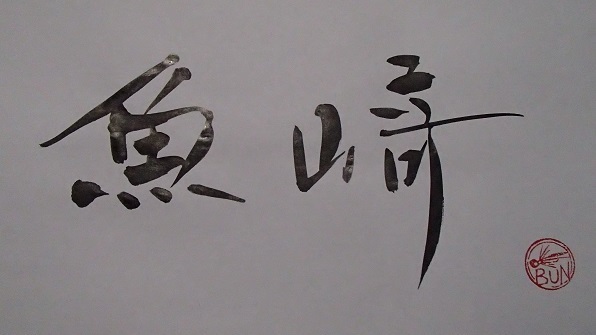 魚﨑
BUN